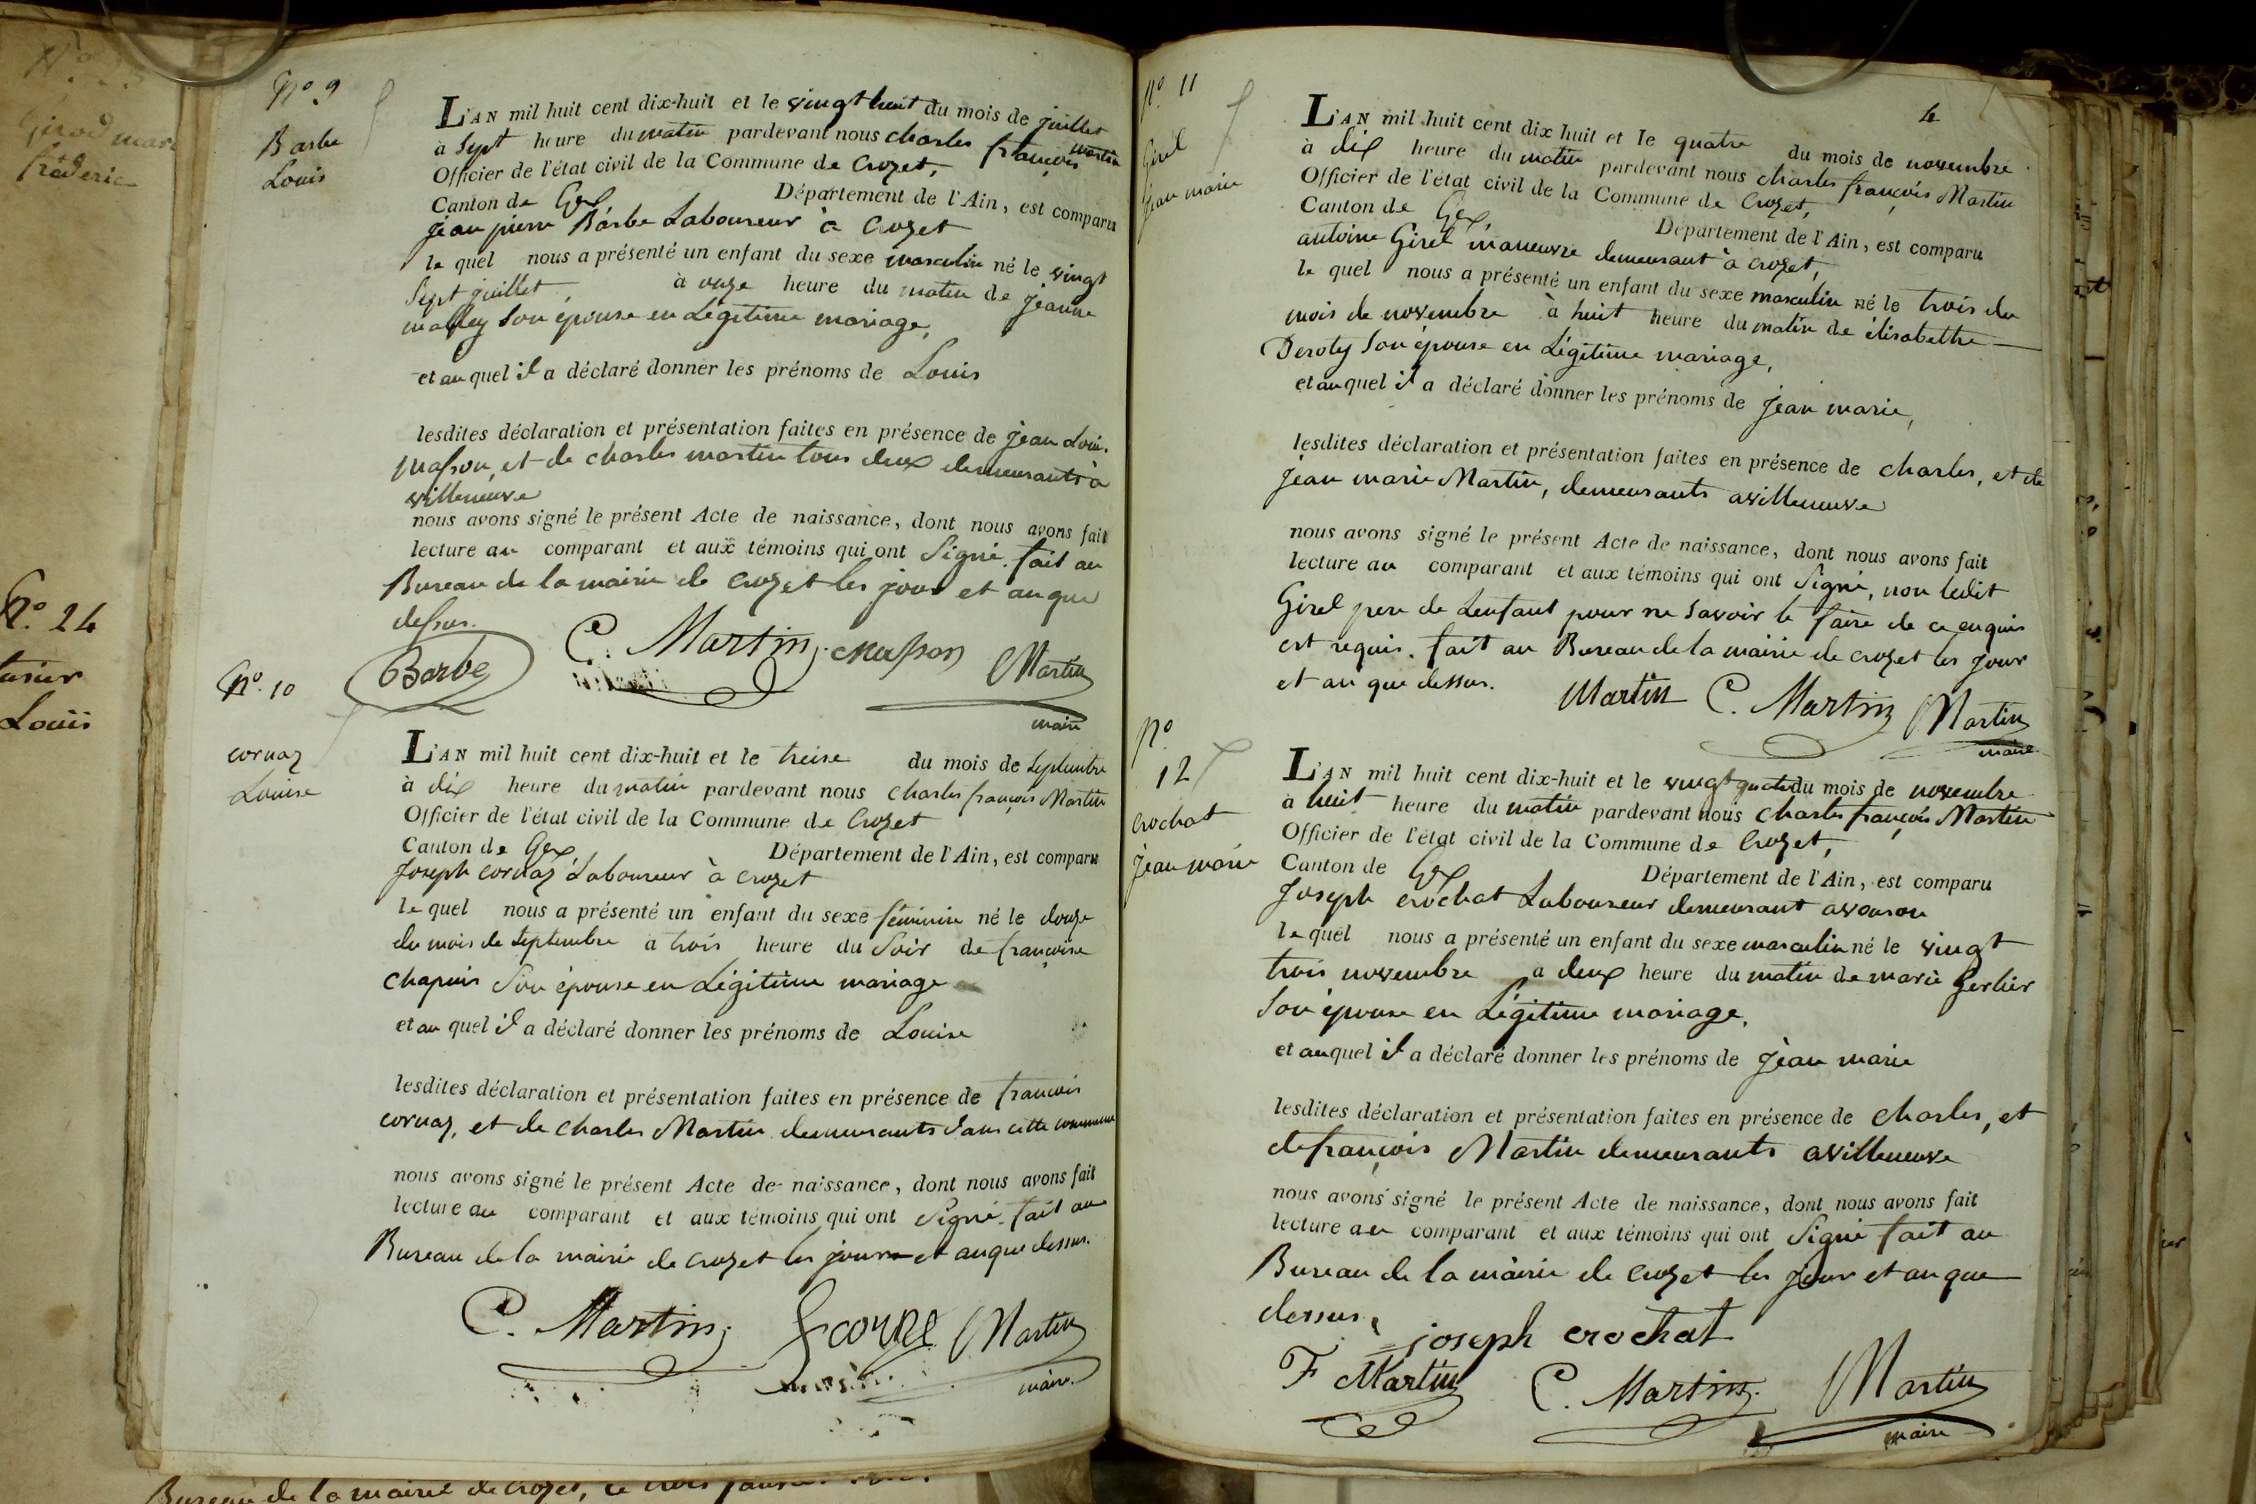 Nº 9
Barbe
Louis
L'AN mil huit cent dix-huit et le vingt huit du mois de juillet
à sept heure du matin pardevant nous charles françois martin
Officier de l'état civil de la Commune de Crozet,
Canton de Gex Département de l'Ain, est comparu
jean pierre Barbe Laboureur à Crozet
le quel nous a présenté un enfant du sexe masculin né le vingt
sept juillet, à onze heure du matin de jeanne
son épouse en Légitime mariage,
et au quel il a déclaré donner les prénoms de Louis
lesdites déclaration et présentation faites en présence de jean Louis
Masson, et de charles martin tous deux demeurants à
villeneuve
nous avons signé le présent Acte de naissance, dont nous avons fait
lecture au comparant et aux témoins qui ont signé. fait au
Bureau de la mairie de Crozet les jour et an que
dessus.
Barbe C. Martin Masson Martin
maire
Nº 10
cornaz
Louise
L'AN mil huit cent dix-huit et le treise du mois de septembre
à dix heure du matin pardevant nous charles françois Martin
Officier de l'état civil de la Commune de Crozet
Canton de Gex Département de l'Ain, est comparu
Joseph cornaz Laboureur à crozet
le quel nous a présenté un enfant du sexe féminin né le douze
du mois de septembre a trois heure du soir de françoise
chapuis son épouse en Légitime mariage
et au quel il a déclaré donner les prénoms de Louise
lesdites déclaration et présentation faites en présence de francois
cornaz, et de charles Martin demeurants dans cette commune
nous avons signé le présent Acte de naissance, dont nous avons fait
lecture au comparant et aux témoins qui ont signé. fait au
Bureau de la mairie de crozet les jour et an que dessus.
C. Martin Martin
maire
Nº 11
Girel
jean marie
4
L'AN mil huit cent dix huit et le quatre du mois de novembre
à dix heure du matin pardevant nous charles françois Martin
Officier de l'état civil de la Commune de Crozet,
Canton de Gex, Département de l'Ain, est comparu
antoine Girel manœuvre demeurant à crozet,
le quel nous a présenté un enfant du sexe masculin né le trois du
mois de novembre à huit heure du matin de élisabethe
Deroty son épouse en Légitime mariage,
et au quel il a déclaré donner les prénoms de jean marie,
lesdites déclaration et présentation faites en présence de charles, et de
jean marie Martin, demeurants a villeneuve
nous avons signé le présent Acte de naissance, dont nous avons fait
lecture au comparant et aux témoins qui ont signé, non ledit
Girel pere de Lenfant pour ne savoir le faire de ce enquis
est requis. fait au Bureau de la mairie de crozet les jour
et an que dessus. Martin C. Martin Martin
maire
Nº
12
crochat
jean marie
L'AN mil huit cent dix-huit et le vingt quatre du mois de novembre
à huit heure du matin pardevant nous charles françois Martin
Officier de l'état civil de la Commune de Crozet,
Canton de Gex Département de l'Ain, est comparu
Joseph crochat Laboureur demeurant avouson
le quel nous a présenté un enfant du sexe masculin né le vingt
trois novembre a deux heure du matin de marie Gerlier
son épouse en Légitime mariage,
et au quel il a déclaré donner les prénoms de jean marie
lesdites déclaration et présentation faites en présence de charles, et
de françois Martin demeurants a villeneuve
nous avons signé le présent Acte de naissance, dont nous avons fait
lecture au comparant et aux témoins qui ont signé fait au
Bureau de la mairie de crozet les jour et an que
dessus,
joseph crochat
F Martin C. Martin Martin
maire
Girod
fréderic
Nº. 24
Louis
Bureau de la mairie de crozet, ce trois